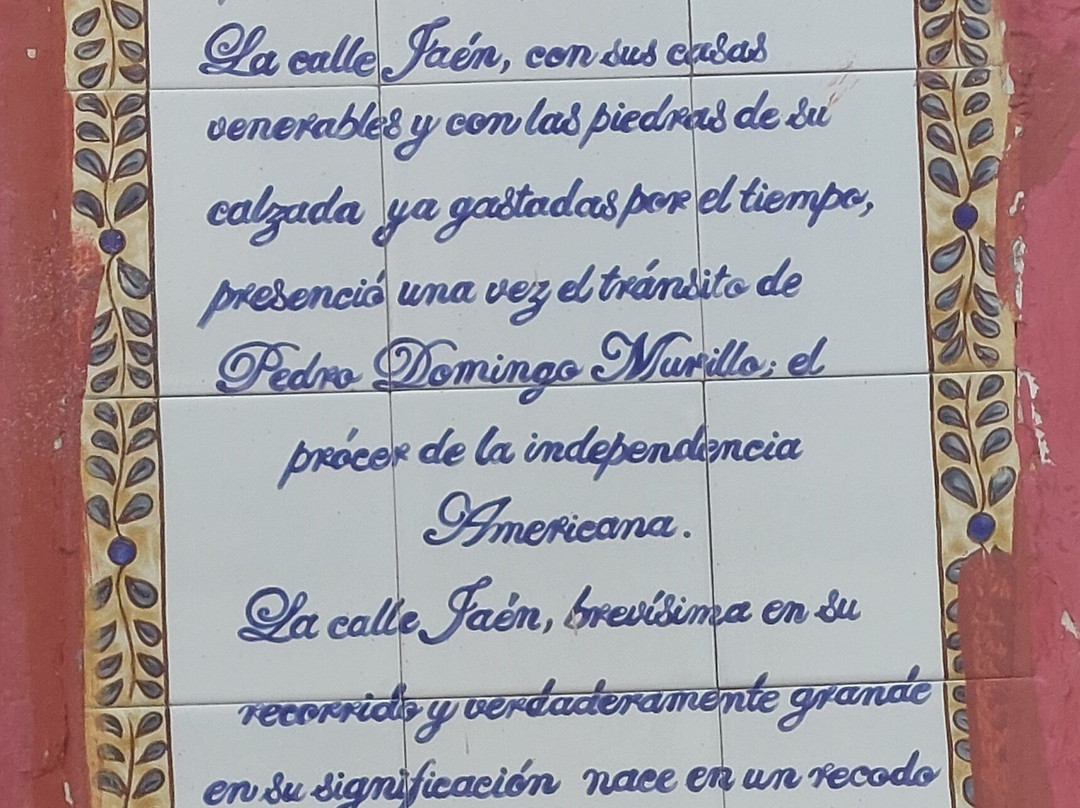 La calle Jaén, con sus casas
venerables y con las piedras de su
calzada ya gastadas por el tiempo,
presenció una vez el tránsito de
Pedro Domingo Murillo; el
prócer de la independencia
Americana.
La calle Jaén, brevísima en su
recorrido y verdaderamente grande
en su significación nace en un recodo